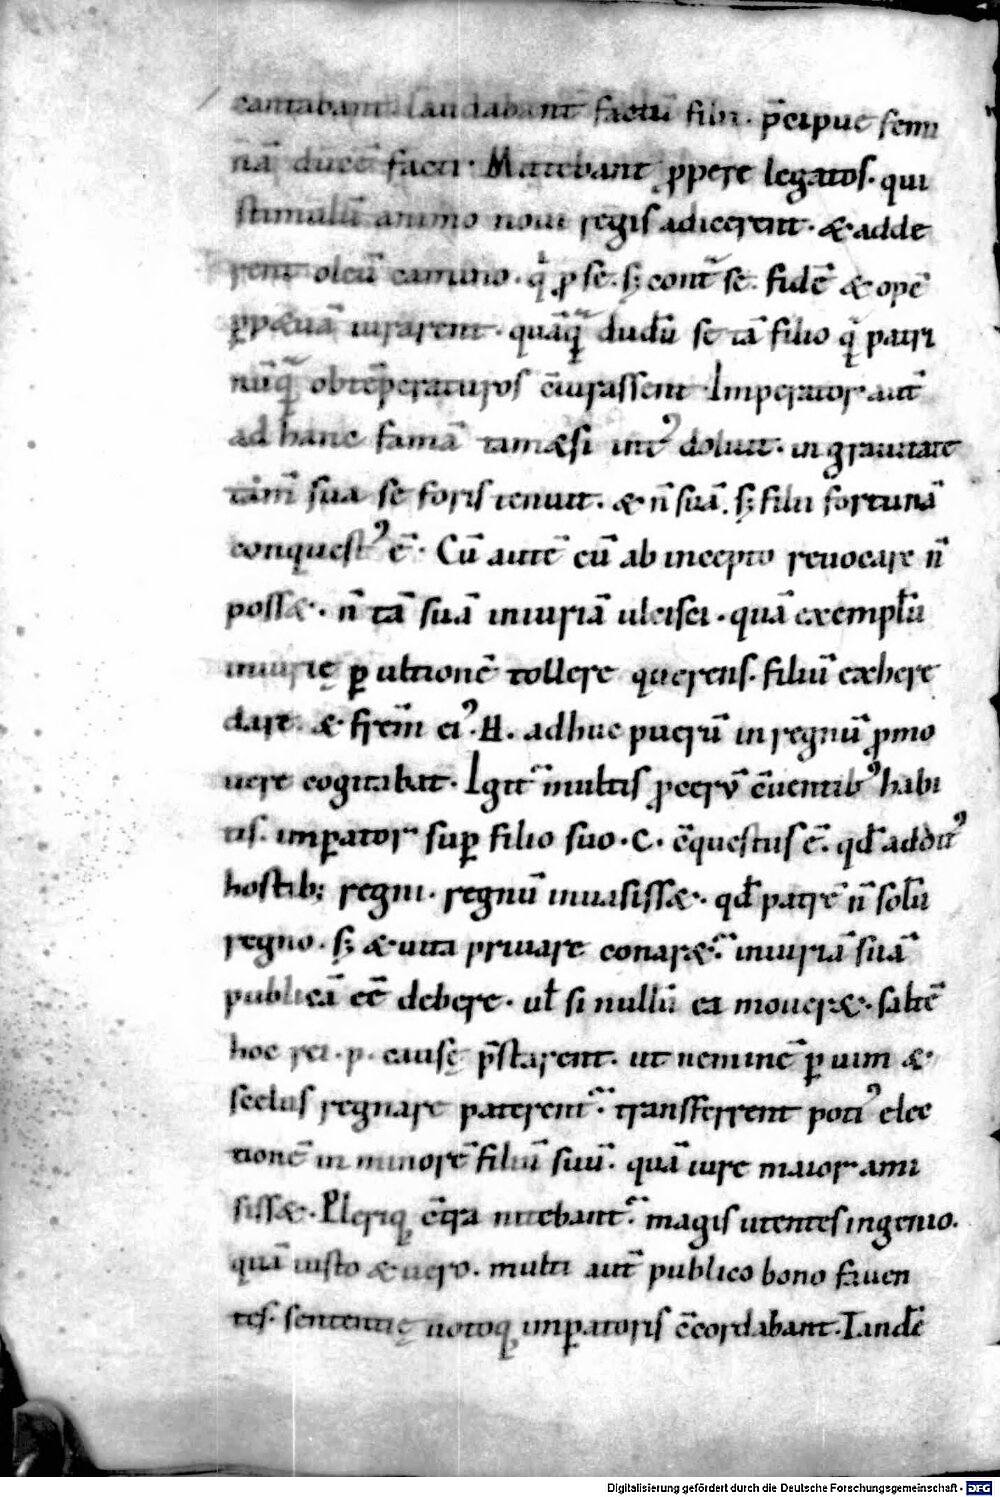 cantabant laudabant factū filii · p̄cipue femi
nā ducē facti · Mittebant ꝓpere legatos · qui
stimulū animo noui regis adicerent · & adde
rent oleū camino · q̇ ꝓ se · sꝫ cont̄ se · fidē & opē
ꝑp&uā iurarent · quāqꝫ dudū se tā filio q̄ patri
nūq̄ obtēperaturos c̄iurassent · Imperator aut̄
ad hanc famā tam&si int᾿ doluit · in grauitate
tam̄ sua se foris tenuit · & n̄ suā · sꝫ filii fortunā
conquest᾿ ē · Cū autē eū ab incepto reuocare n̄
poss& · n̄ tā suā iniuriā ulcisci · quā exemplū
iniurię ꝑ ultionē tollere querens · filiū exhere
dare · & frēm ei᾿ · H · adhuc puerū in regnū ꝓmo
uere cogitabat · Igit᷒ multis ꝓcerū c̄uentib᾿ habi
tis · imꝑator suꝑ filio suo · C · c̄questus ē · qđ addit᾿
hostibꝫ regni · regnū inuasiss& · qđ patrē n̄ solū
regno · sꝫ & uita priuare conar&᷒ · iniuriā suā
publicā eē debere · ul̄ si nullū ea mouer& · saltē
hoc rei · p · causę p̄starent · ut neminē ꝑ uim &
scelus regnare paterent᷒ · transferrent poti᾿ elec
tionē in minorē filiū suū · quā iure maior ami
siss& · Pleriqꝫ c̄tra nitebant᷒ · magis utentes ingenio ·
quā iusto & uero · multi aut̄ publico bono fauen
tes · sententię uotoqꝫ imꝑatoris c̄cordabant · Tandē
Digitalisierung gefördert durch die Deutsche Forschungsgemeinschaft - DFG